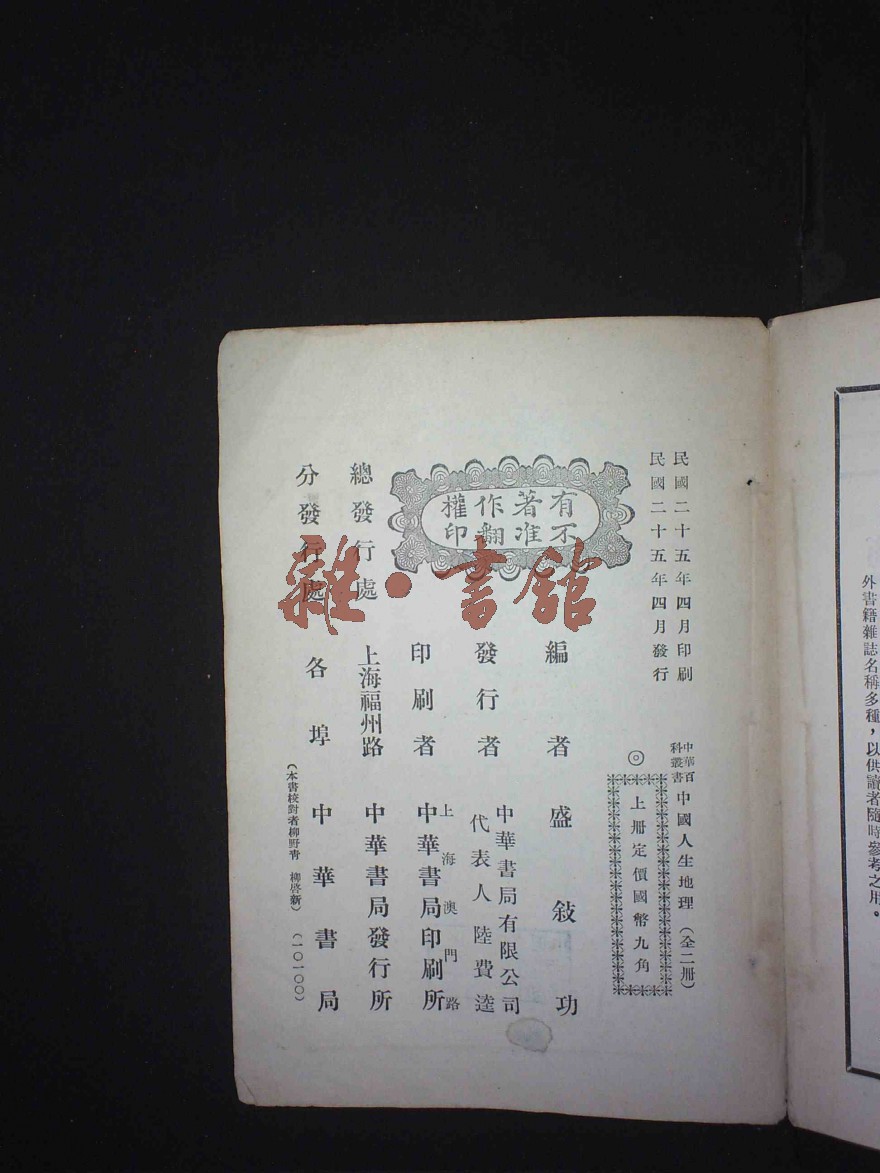 外書籍雜誌名稱多種，以供讀者隨時參考之用。
民國二十五年四月印刷
民國二十五年四月發行
中華百科叢書 中國人生地理 （全二冊）
◎ 上冊定價國幣九角
有著作權
不准翻印
編者 盛敍功
發行者 中華書局有限公司
代表人 陸費逵
印刷者 上海澳門路
中華書局印刷所
總發行處 上海福州路 中華書局發行所
分發行處 各埠 中華書局
（本書校對者柳野青 柳啓新）（一〇一〇〇）
雜·書館